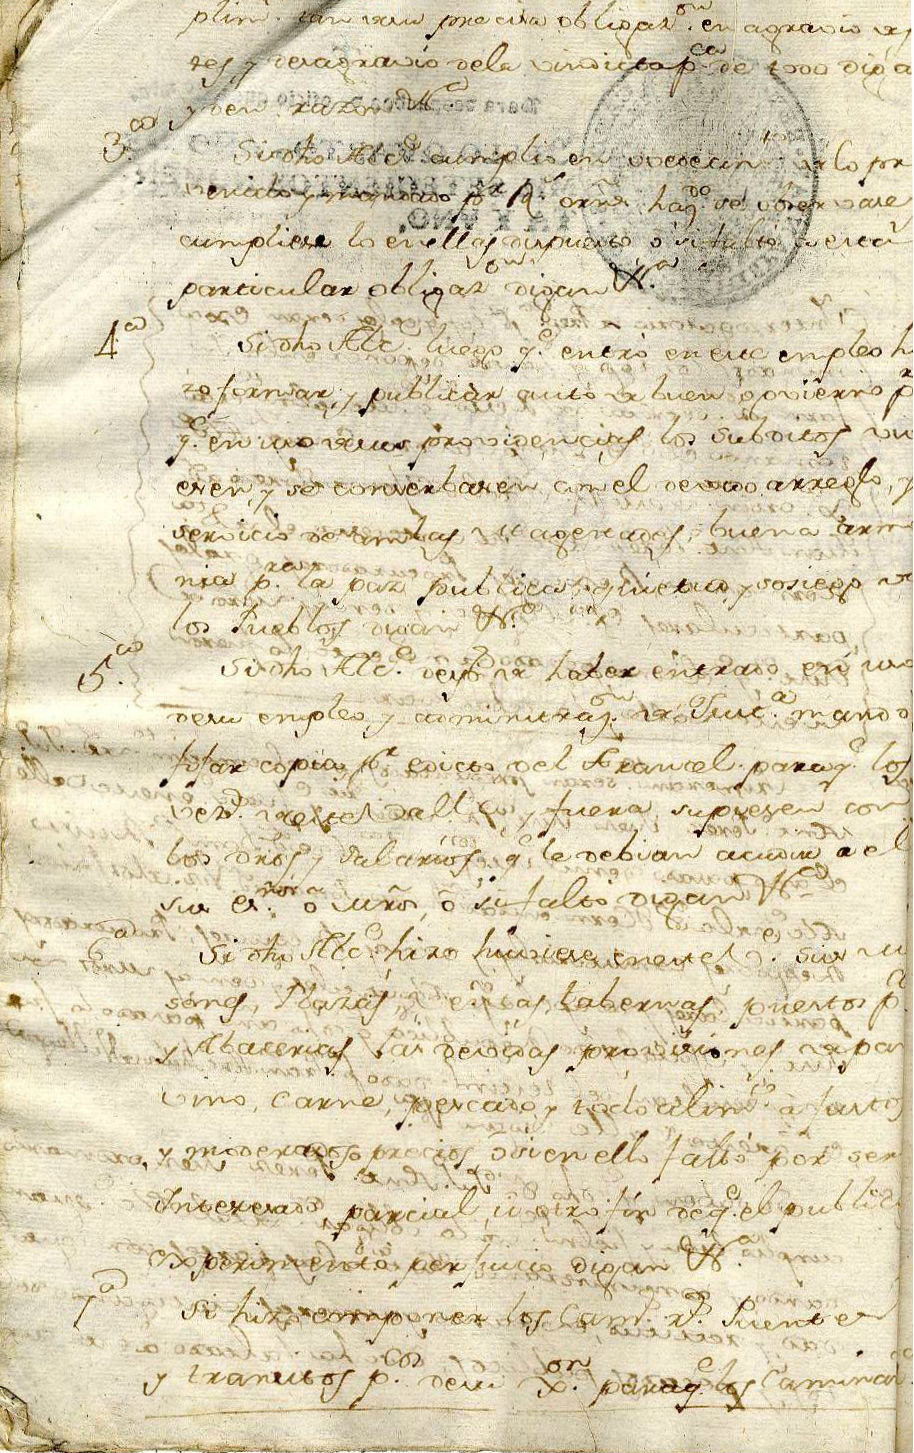 plim.to tan  precisa obligaz.on en agravio
tes, y desagravio dela vindicta p.ca de todo digan
y den razon &.a
3.a Si dho Alc.e cumplio en  lo pre
venido y mandado p.r R.s orn.s haz.do se observase
cumpliese lo en ellas dispuesto o si faltó a esta
particular obligaz.on digan &.a
4.a Si dho Alc.e luego q.e entró en este empleo hi
zo formar, y publicar auto de buen govierno p.r
q.e en  providencias los subditos viv
esen y se conserbasen con el devido arreglo, y
servicio de ambas Magestades, buena armo
nia p.ra la paz publica, quietud, y sosiego de
los Pueblos digan &.a
5.a Si dho Alc.e desp.s de haber entrado en uso
de su empleo, y administraz.on de Just.a mandó
fijar copia, p.r edicto del Arancel para q.e los
vez.s de el Valle y fuera, supiesen con
los dros, y salarios q.e le debian acudir a el
sus es.nos o mros, o si faltó digan &.a
6.a Si dho Alc.e hizo hubiese en este V.e sus me
sones, Plazas, ventas, tabernas, puestos p.cos
y Abacerias las devidas provisiones de pan
vino, carne, pescado y todo alim.to a justos
y moderados precios o si en ello faltó por ser
Interesado parcial, u otro fin de q.e el publico
experimentó perjuicio digan &.a
7.a Si hizo componer los Cam.s R.s Puentes
y transitos p.cos de su x.on para q.e los Caminan